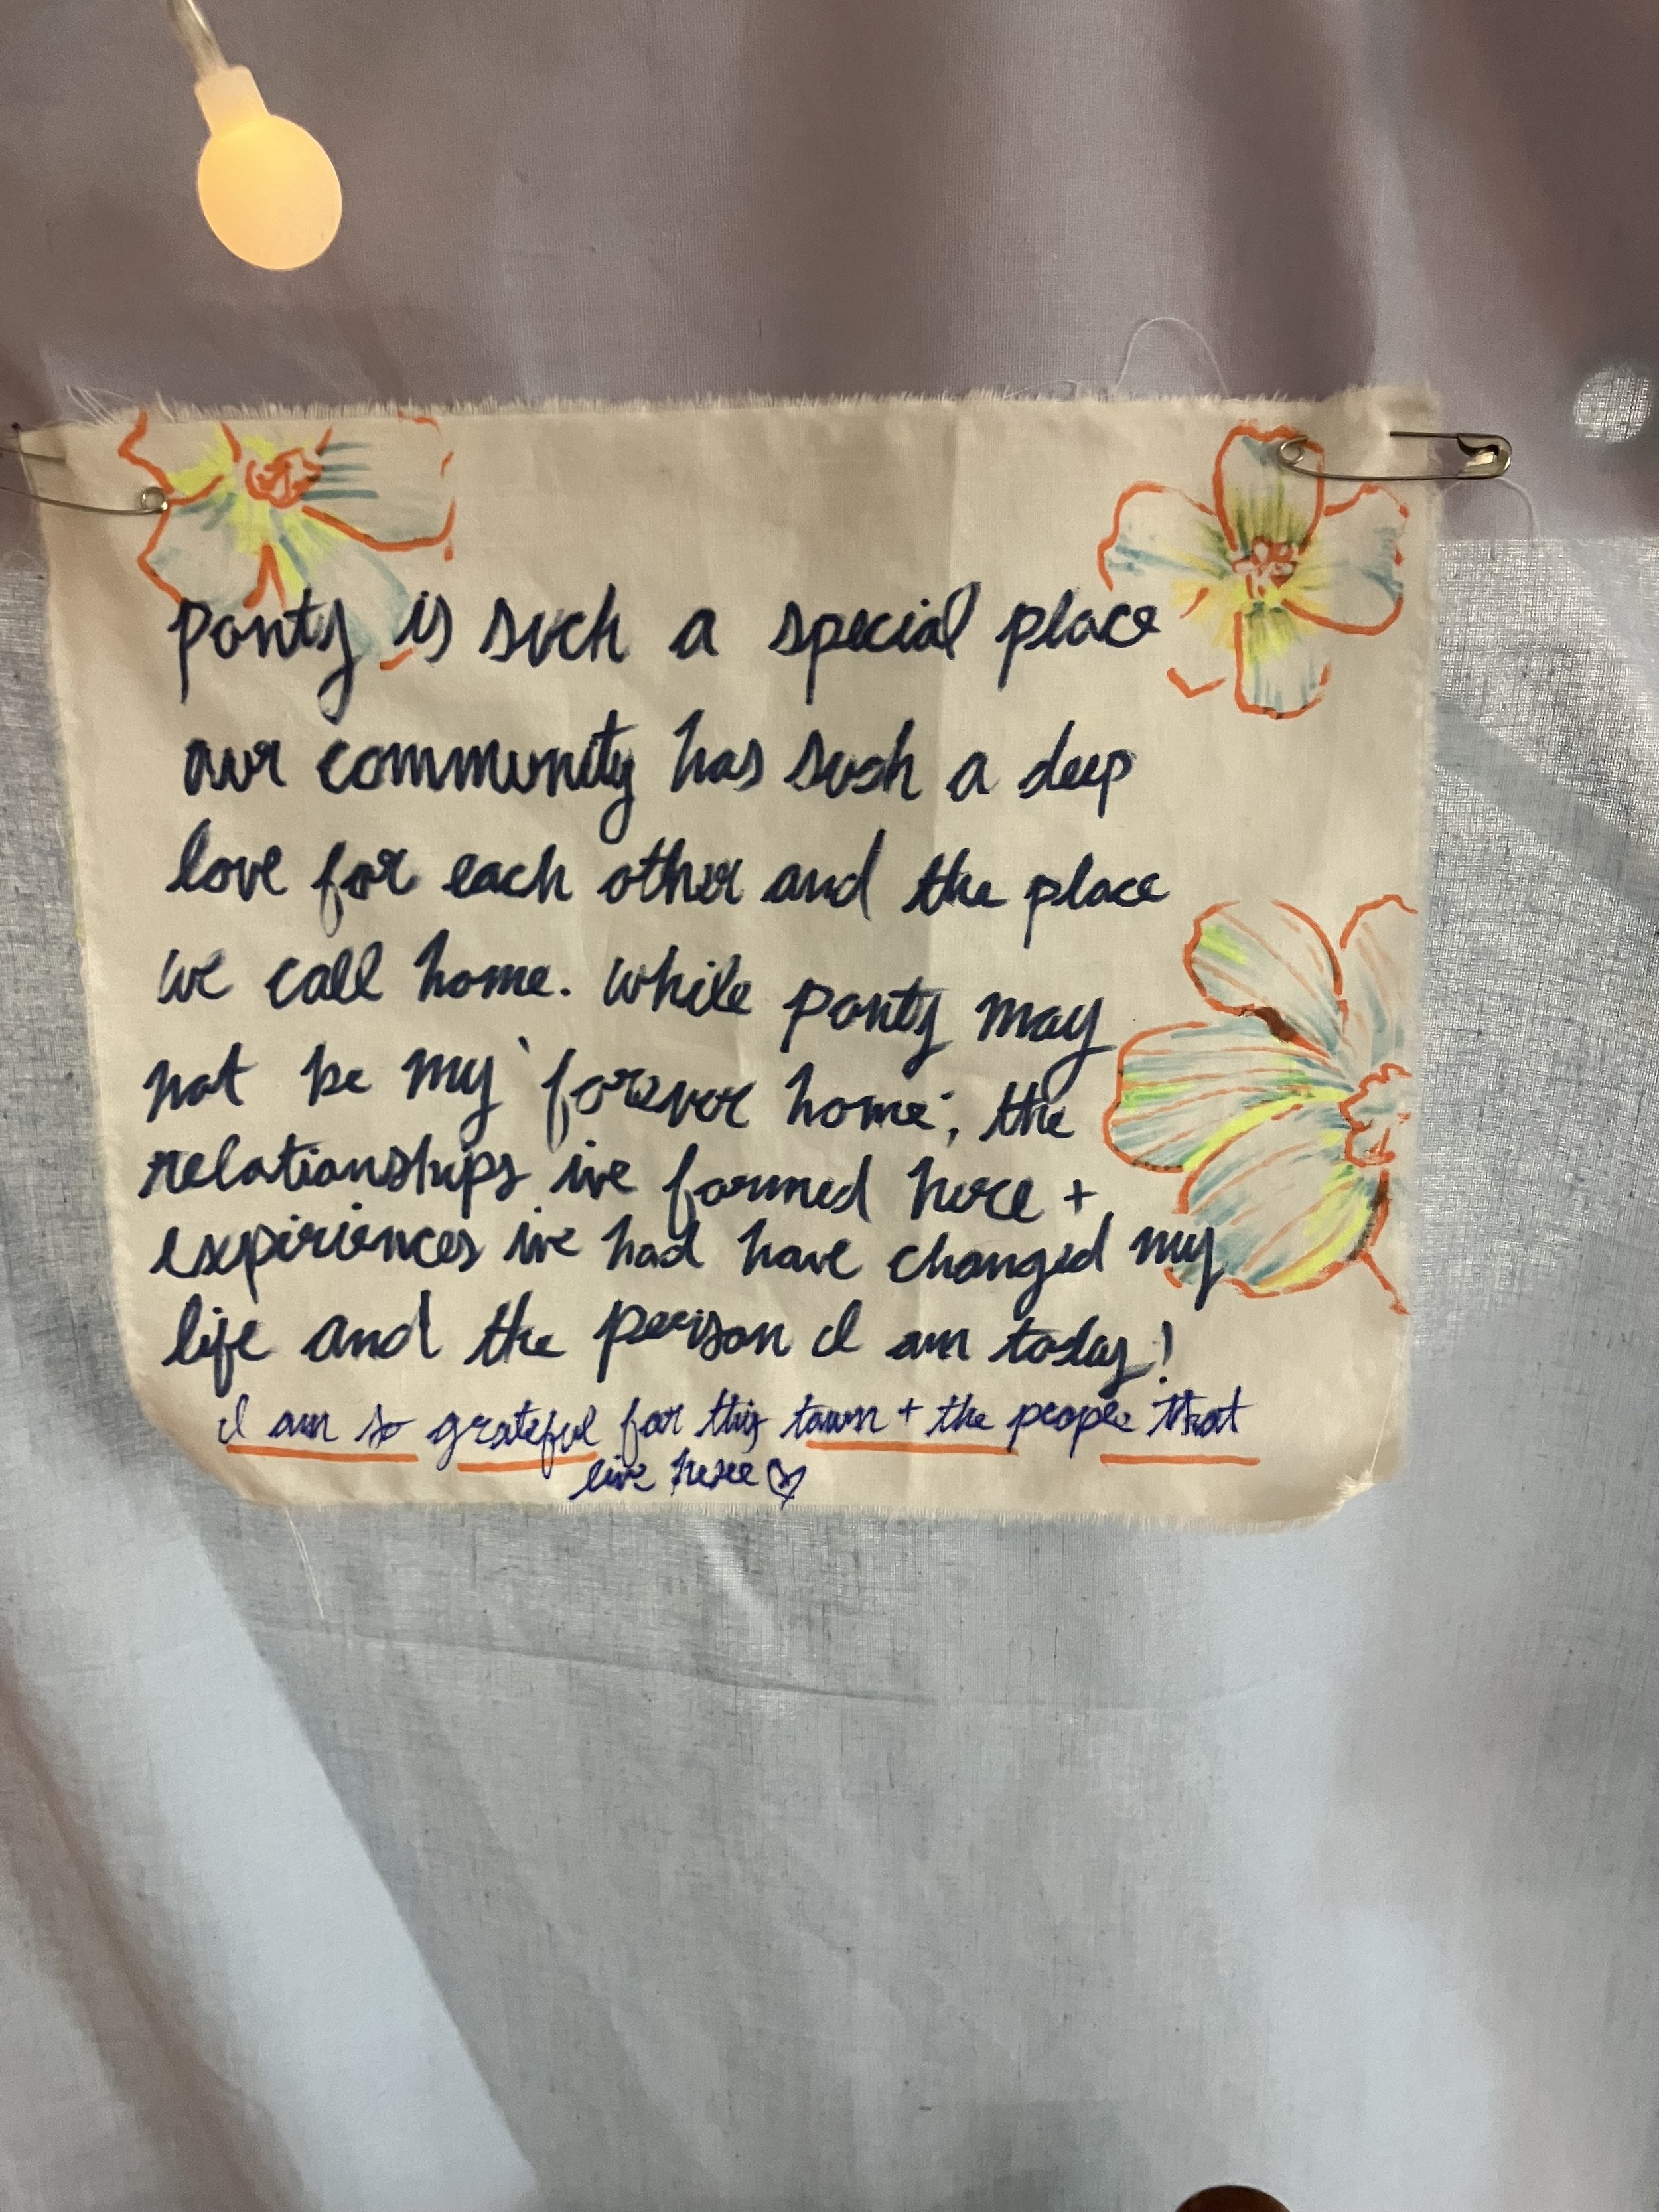 Ponty is such a special place
our community has such a deep
love for each other and the place
we call home. While Ponty may
not be my 'forever home', the
relationships ive formed here +
expiriences ive had have changed my
life and the person I am today!
I am so grateful for this town + the people that
live here ♡